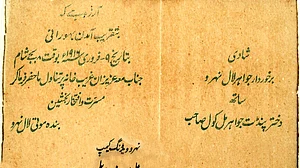 آرزو ہے کہ
بتقریب آمدن بہورانی
بتاریخ ۹۔ فروری ۱۹۱۶ بوقت ۔ بجے شام
جناب معہ عزیزان غریب خانہ پر تناول ماحضر فرماکر
مسرت و افتخار بخشیں
بندہ موتی لال نہرو
نہرو ویڈنگ کیمپ
شادی
برخوردار جواہر لال نہرو
ساتھ
دختر پنڈت جواہر مل کول صاحب